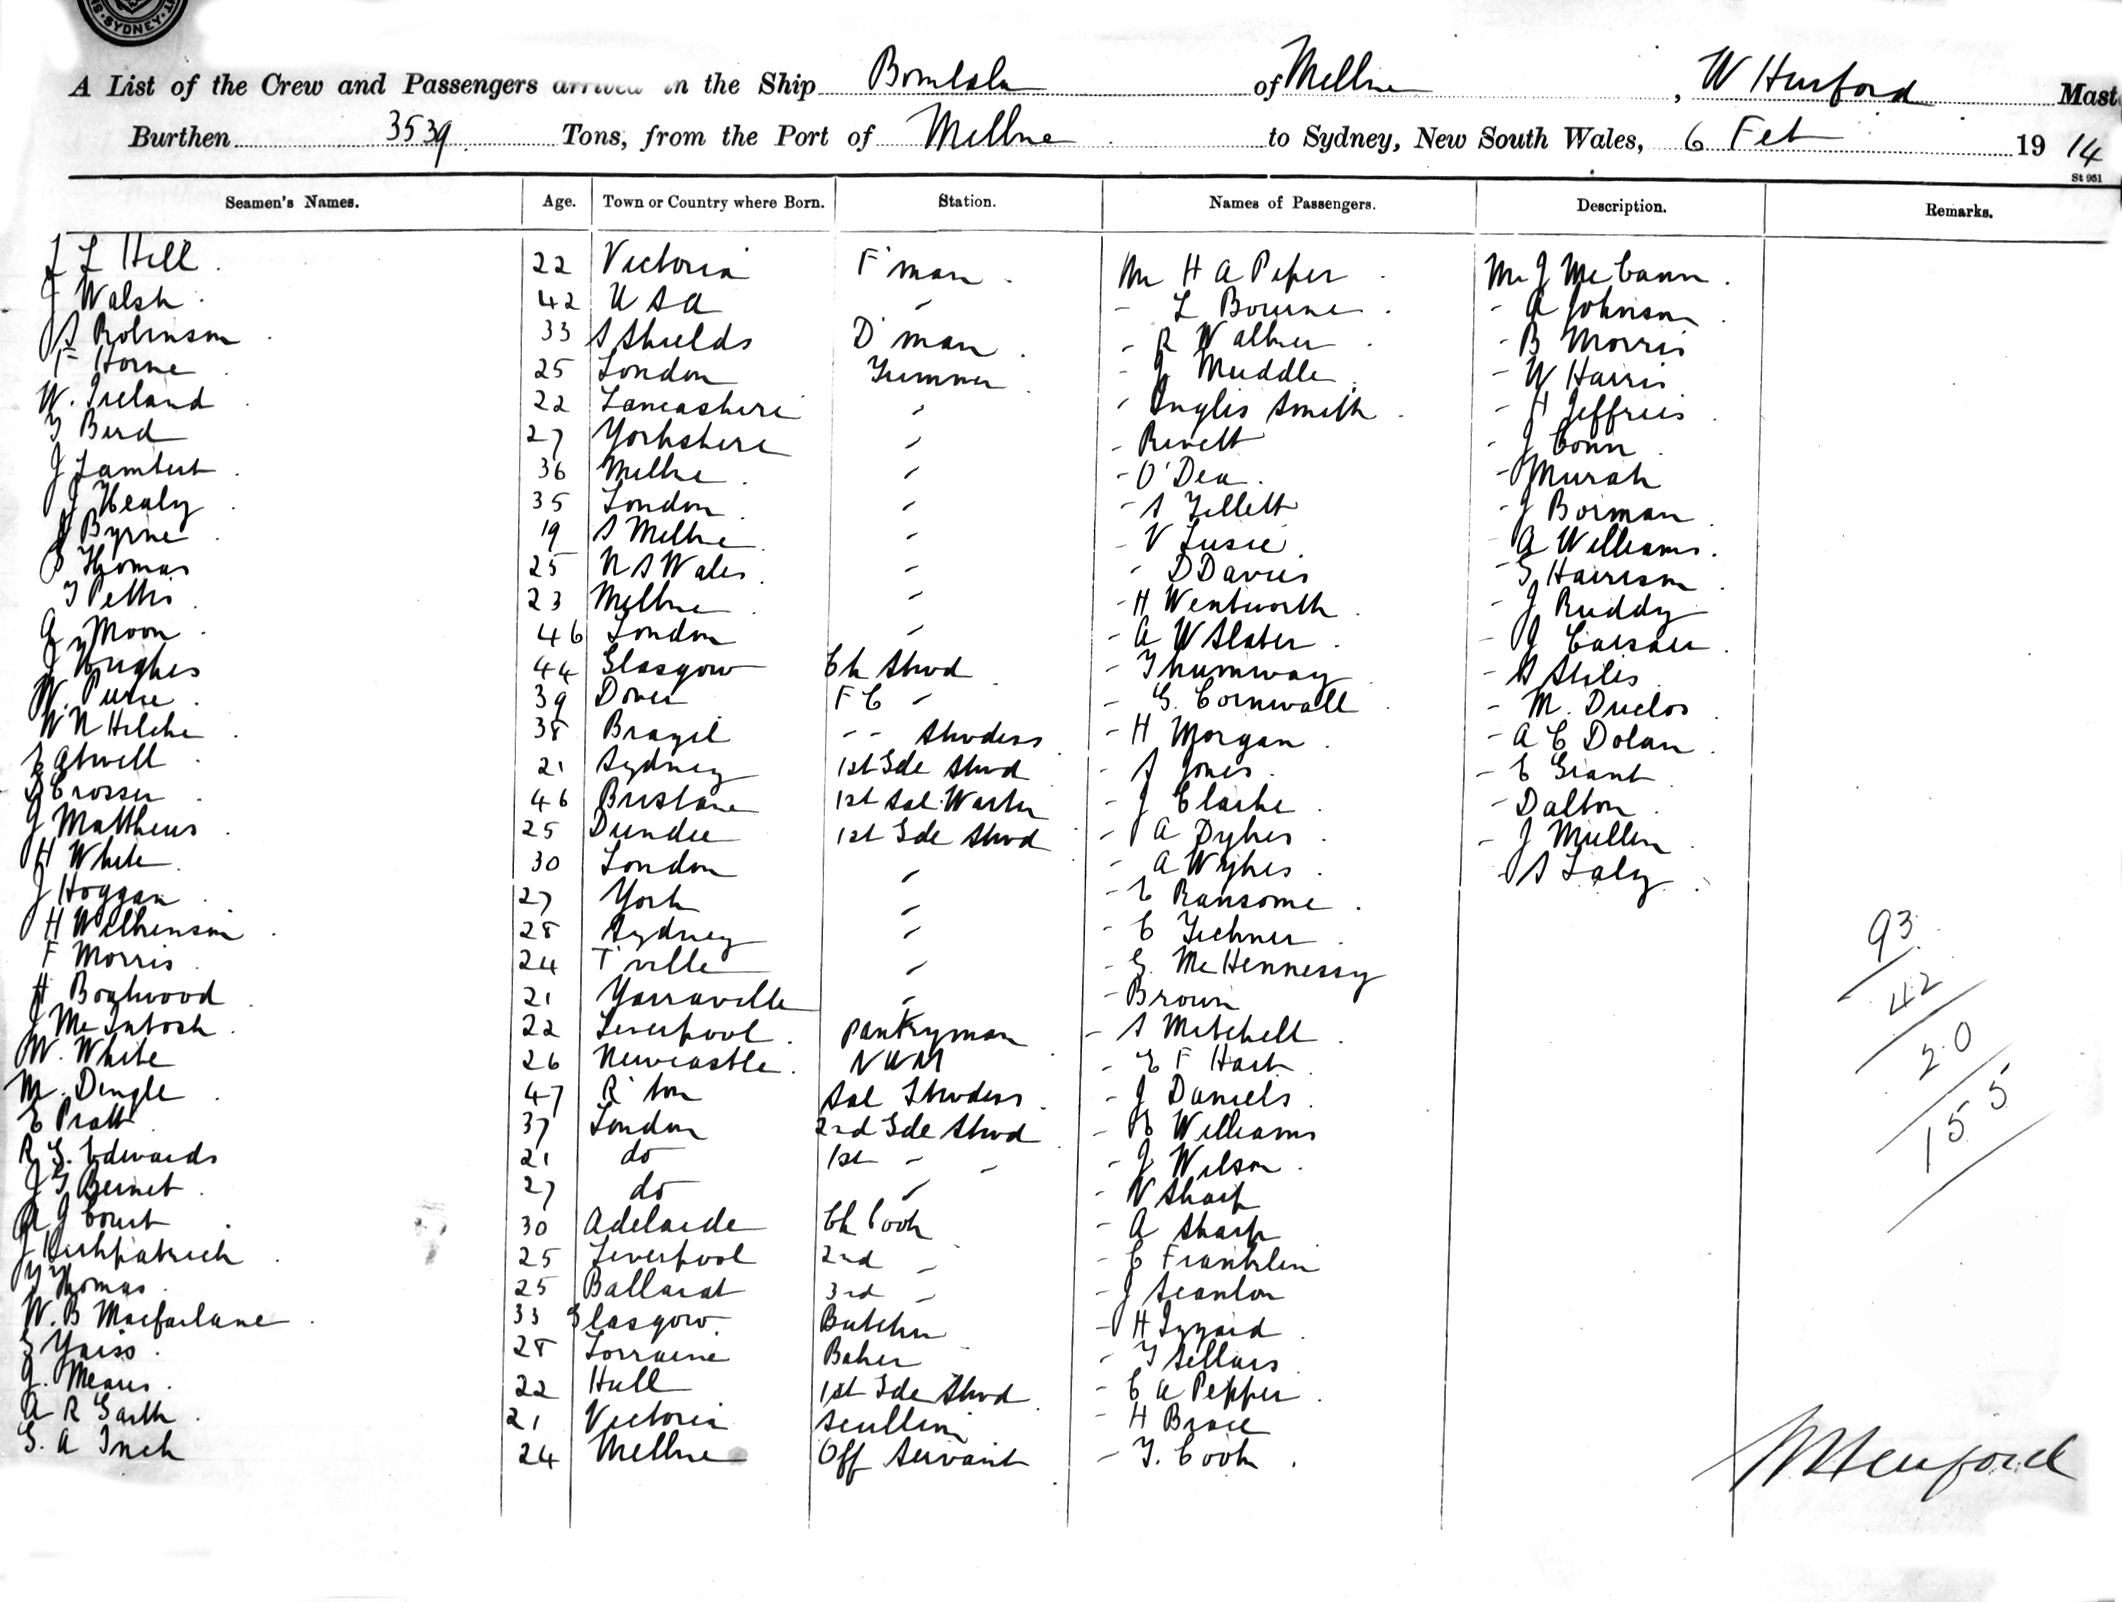 SYDNEY
A List of the Crew and Passengers arrived in the Ship Bombala of Melbne, W Hurford Mast
Burthen 3539 Tons, from the Port of Melbne to Sydney, New South Wales, 6 Feb 1914
St 951
Seamen's Names. Age. Town or Country where Born. Station. Names of Passengers. Description. Remarks.
J L Hill 22 Victoria F'man Mr H A Peper Mr J McCann
J Walsh 42 U S A " - L Bourne - A Johnson
S Robinson 33 S Shields D'man - R Walker - B Morris
F Horne 25 London Trimmer - J Muddle - W Harris
W. Ireland 22 Lancashire " - Inglis Smith - H Jeffries
T Bird 27 Yorkshire " - Rivett - J Conn
J Lambert 36 Melbne " - O'Dea - Murah
J Healy 35 London " - S Tillett - J Borman
J Byrne 19 S Melbne " - V Lusie - A Williams
S Thomas 25 N S Wales " - D Davies - G Harrison
T Pettis 23 Melbne " - H Wentworth - J Ruddy
A Moon 46 London " - A W Slater - J Caesar
J Hughes 44 Glasgow Ch Stwd - Thumway - S Stiles
W. Purse 39 Dover F C " - G. Cornwall - M. Duclos
W N Hilche 38 Brazil - - Stwdess - H Morgan - A C Dolan
E Atwell 21 Sydney 1st Sde Stwd - S Jones - C Grant
Crosser 46 Brisbane 1st Sal. Waiter - J Clarke - Dalton
J Matthews 25 Dundee 1st Sde Stwd - A Dykes - J Mullen
H White 30 London " - A Wykes - S Laly
J Hoggan 27 York " - E Ransome
H Wilkenson 28 Sydney " - C Tichner 93
F Morris 24 T'ville " - G. McHennessy 42
H Boatwood 21 Yarraville " - Brown 20
J McIntosh 22 Liverpool Pantryman - S Mitchell 155
W. White 26 Newcastle N W M - E F Hart
M. Dingle 47 R'ton Sal Stwdess - J Daniels
E Pratt 37 London 2nd Sde Stwd - E Williams
R G. Edwards 21 do 1st " " - J Wilson
J G Bernet 27 do " - V Sharp
A J Court 30 Adelaide Ch Cook - A Sharp
J Kirkpatrick 25 Liverpool 2nd " - C Franklin
Thomas 25 Ballarat 3rd " - J Scanlon
W. B Macfarlane 33 Glasgow Butcher - H Izzard
G Yaiss 28 Lorraine Baker - T Sellars
J. Mears 22 Hull 1st Sde Stwd - C A Pepper
A R Garth 21 Victoria Scullion - H Brace
G. A Inch 24 Melbne Off Servant - T. Cook
W Hurford